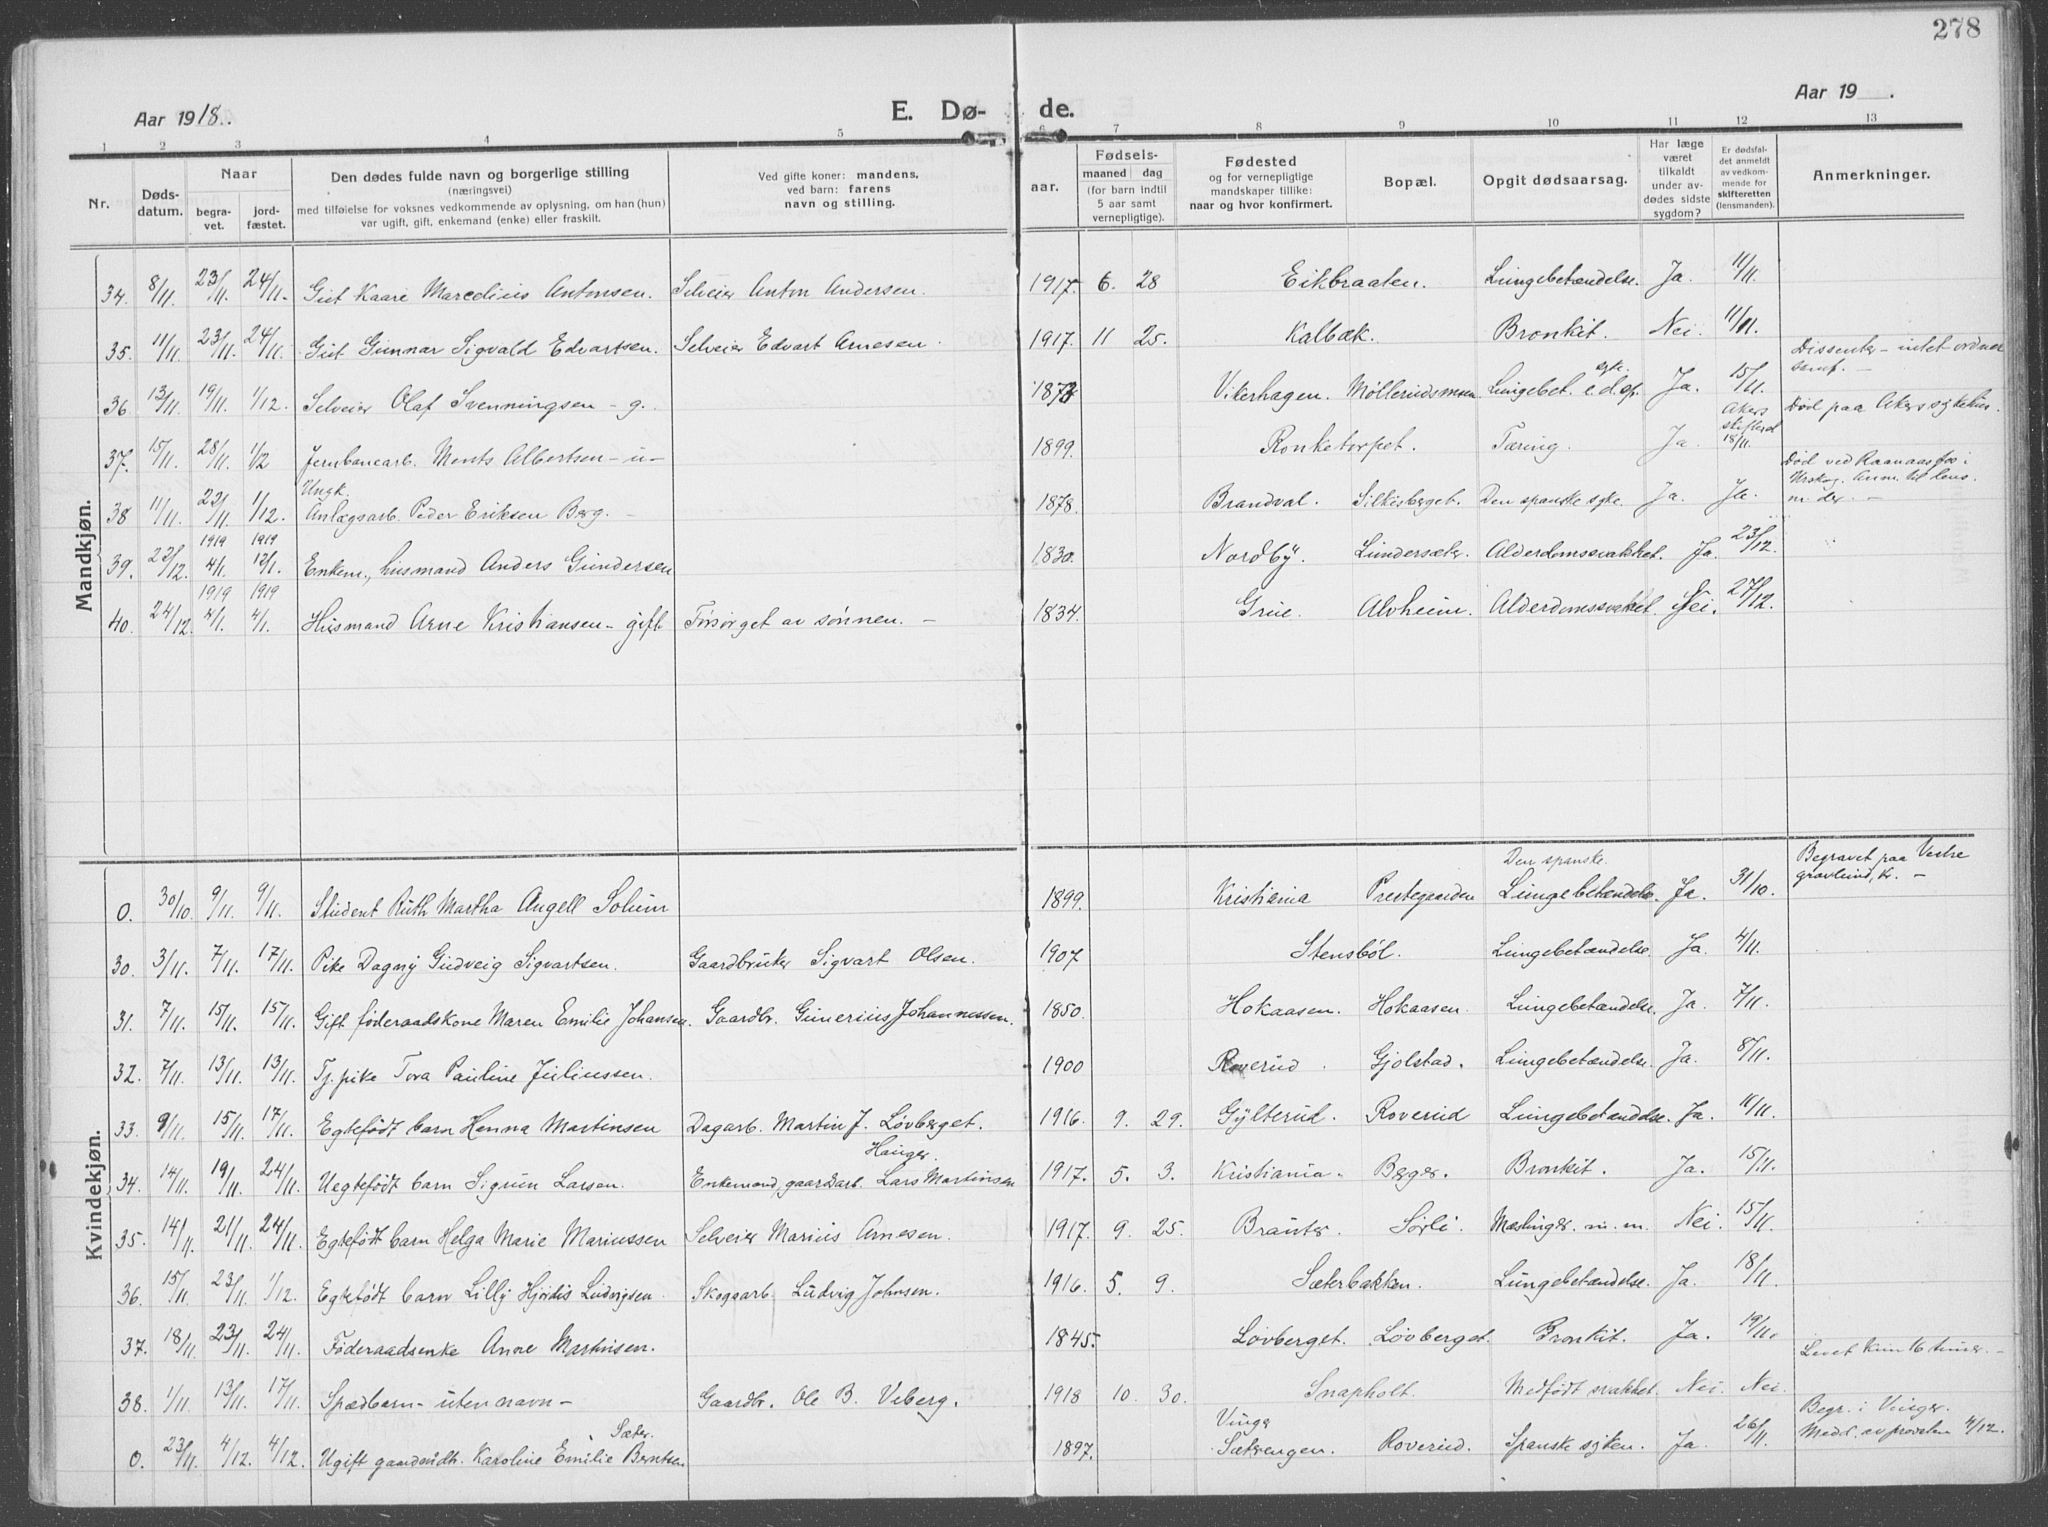 278
Aar 1918. E. Dø- de. Aar 19 .
1 2 3 4 5 6 7 8 9 10 11 12 13
Nr. Døds-datum. Naar begra-vet. jord-fæstet. Den dødes fulde navn og borgerlige stilling (næringsvei) med tilføielse for voksnes vedkommende av oplysning, om han (hun) var ugift, gift, enkemand (enke) eller fraskilt. Ved gifte koner: mandens, ved barn: farens navn og stilling. aar. Fødsels- maaned dag (for barn indtil 5 aar samt vernepligtige). Fødested og for vernepligtige mandskaper tillike: naar og hvor konfirmert. Bopæl. Opgit dødsaarsag. Har læge været tilkaldt under av-dødes sidste sygdom? Er dødsfal-det anmeldt av vedkom-mende for skifteretten (lensmanden). Anmerkninger.
Mandkjøn.
34. 8/11. 23/11. 24/11. Gut Kaare Marcelius Antonsen. Selveier Anton Andersen. 1917. 6. 28 Eikbraaten. Lungebetændelse. Ja. 11/11.
35. 11/11. 23/11. 24/11. Gut Gunnar Sigvald Edvartsen. Selveier Edvart Arnesen. 1917. 11 25. Kalbæk. Bronkit. Nei. 11/11. Dissenter – intet ordnet samf. –
36. 13/11. 19/11. 1/12. Selveier Olaf Svenningsen – g. Vikerhagen. Møllerudsmoen Lungebet. e. d. sp. syke. Ja. 15/11.
37. 15/11. 28/11. 1/12 Jernbanearb. Albertsen – u – 1899. Ronketorpet. Tæring. Ja. Akers skifteret 18/11. Død paa Akers sykehus.
38 11/11. 23/11. 1/12. Ungk. Anlægsarb. Peder Eriksen Berg. – 1878. Brandval. Silkisberget. Den spanske syke. Ja. Ja. Død ved Raanaasfos i Urskog. Anm. til lens m. der. –
39. 22/12. 1919 4/1. 1919 12/1. Enkem., husmand Anders Gundersen 1830. Nordby. Lundersæter. Alderdomssvakhet. Ja. 23/12.
40. 24/12. 1919 4/1. 1919 4/1. Husmand Arne Kristiansen – gift Forsørget av sønnen. – 1834. Grue. Alvheim. Alderdomssvakhet. Nei. 27/12.
Kvindekjøn.
0. 30/10. 9/11. 9/11. Student Ruth Martha Angell Solum 1899. Kristiania Prestegaarden Den spanske. Lungebetændelse. Ja. 31/10. Begravet paa Vestre gravlund, Kr. –
30. 3/11. 7/11. 17/11. Pike Dagny Gudveig Sigvartsen. Gaardbruker Sigvart Olsen. 1907 Stensbøl. Lungebetændelse Ja 4/11.
31. 7/11. 15/11. 15/11. Gift føderaadskone Maren Emilie Johansen. Gaardbr. Gunerius Johannessen. 1850. Hokaasen. Hokaasen. Lungebetændelse. Ja. 7/11.
32. 7/11. 13/11. 13/11. Tj. pike Tora Pauline Juliussen. 1900 Roverud. Gjølstad. Lungebetændelse Ja. 8/11.
33. 9/11. 15/11. 17/11. Egtefødt barn Henna Martinsen Dagarb. Martin J. Løvberget. 1916. 9. 29. Gylterud. Roverud Lungebetændelse. Ja. 11/11.
34. 14/11. 19/11. 24/11. Uegtefødt barn Sigrun Larsen. Enkemand, gaardarb. Lars Martinsen Hauger. 1917. 5. 3. Kristiania. Berger. Bronkit. Ja. 15/11.
35. 14/11. 21/11. 24/11. Egtefødt barn Helga Marie Mariussen Selveier Marius Arnesen. 1917. 9 25. Brauter. Sørli. Meslinger m. m. Nei. 15/11.
36. 15/11. 23/11. 1/12. Egtefødt barn Lilly Hjørdis Ludvigsen. Skogarb. Ludvig Johnsen. 1916. 5. 9. Sæterbakken. Lungebetændelse. Ja. 18/11.
37. 18/11. 23/11. 24/11. Føderaadsenke Anne Martinsen. 1845. Løvberget. Løvberget. Bronkit. Ja. 19/11.
38. 1/11. 13/11. 17/11. Spædbarn – uten navn – Gaardbr. Ole B. Viberg. 1918 10. 30. Snapholt. Medfødt svakhet. Nei. Nei. Levet kun 16 timer. –
0. 23/11. 4/12. 4/12. Ugift Karoline Emilie Berntsen Sæter. 1897. Vinger Sætrengen. Roverud. Spanske syken. Ja. 26/11. Begr. i Vinger. Medd. av provsten 4/12.